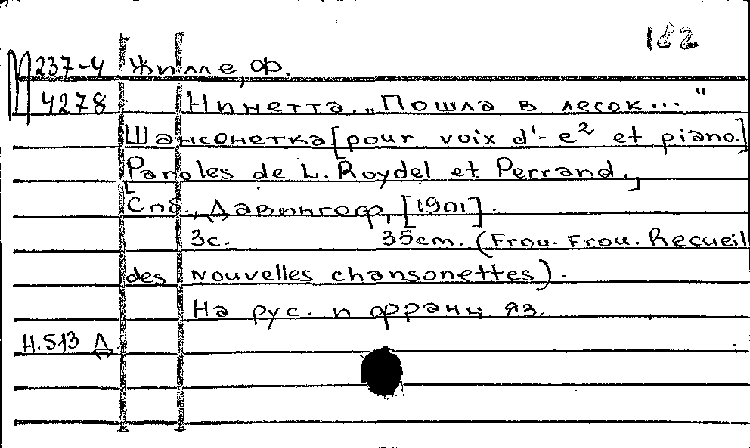 182
М 237-4 Жилле, Ф.
4278 Нинетта. „Пошла в лесок..."
Шансонетка [pour voix d'-e² et piano.]
[Paroles de L. Roydel et Perrand.]
Спб., Давингоф, [1901].
3с. 35cm. (Frou-Frou. Recueil
des nouvelles chansonettes).
На рус. и франц яз.
Н.513 Л